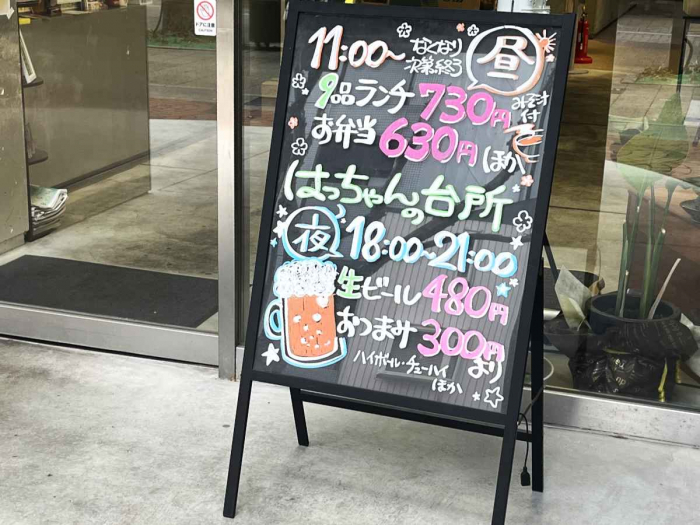 11:00~
なくなり
次第終了
昼
9品ランチ 730円 みそ汁付
お弁当 630円 ほか
はっちゃんの台所
夜 18:00~21:00
生ビール 480円
おつまみ 300円より
ハイボール・チューハイ
ほか